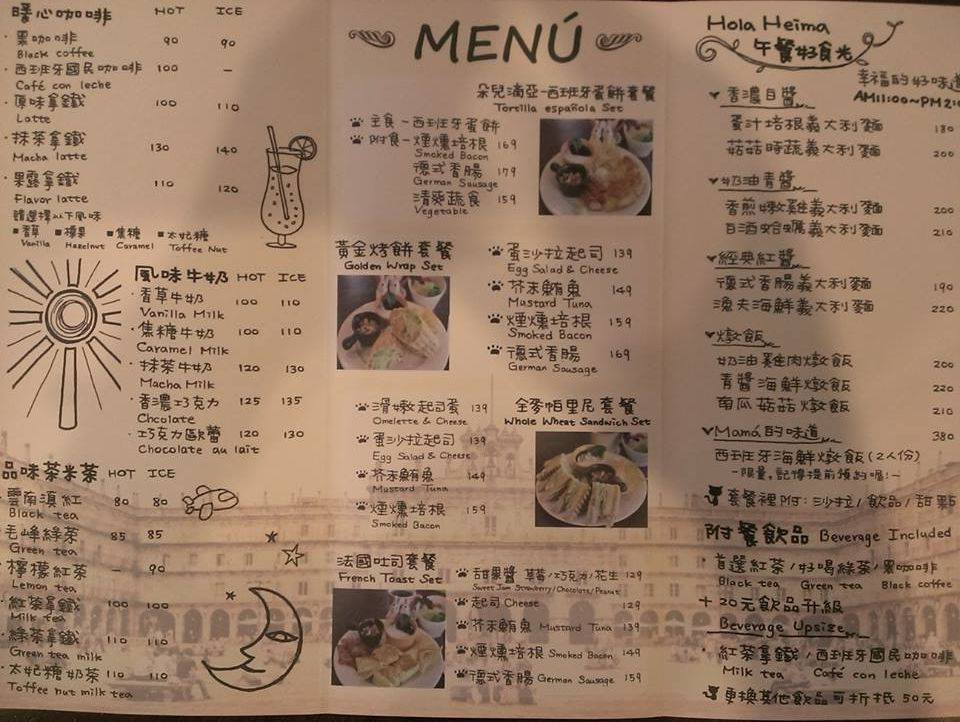 暖心咖啡 HOT ICE
・黑咖啡 90 90
Black coffee
・西班牙國民咖啡 100 –
Café con leche
・原味拿鐵 100 110
Latte
・抹茶拿鐵 130 140
Macha latte
・果露拿鐵 110 120
Flavor latte
請選擇以下風味
▪香草 ▪榛果 ▪焦糖 ▪太妃糖
Vanilla Hazelnut Caramel Toffee Nut
風味牛奶 HOT ICE
・香草牛奶 100 110
Vanilla Milk
・焦糖牛奶 100 110
Caramel Milk
・抹茶牛奶 120 130
Macha Milk
・香濃巧克力 125 135
Chcolate
・巧克力歐蕾 120 130
Chocolate au lait
品味茶米茶 HOT ICE
・雲南滇紅 80 80
Black tea
・毛峰綠茶 85 85
Green tea
・檸檬紅茶 – 90
Lemon tea
・紅茶拿鐵 100 100
Milk tea
・綠茶拿鐵 110 110
Green tea milk
・太妃糖奶茶 110 110
Toffee nut milk tea
MENÚ
朵兒滴亞-西班牙蛋餅套餐
Torcilla española Set
主食-西班牙蛋餅
附食-煙燻培根 169
Smoked Bacon
德式香腸 179
German Sausage
清爽蔬食 159
Vegetable
黃金烤餅套餐
Golden Wrap Set
蛋沙拉起司 139
Egg Salad & Cheese
芥末鮪魚 149
Mustard Tuna
煙燻培根 159
Smoked Bacon
德式香腸 169
German Sausage
全麥帕里尼套餐
Whole Wheat Sandwich Set
滑嫩起司蛋 139
Omelette & Cheese
蛋沙拉起司 139
Egg Salad & Cheese
芥末鮪魚 149
Mustard Tuna
煙燻培根 159
Smoked Bacon
法國吐司套餐
French Toast Set
甜果醬 草莓/巧克力/花生 129
Sweet Jam Strawberry/Chocolate/Peanut
起司 Cheese 129
芥末鮪魚 Mustard Tuna 139
煙燻培根 Smoked Bacon 149
德式香腸 German Sausage 159
Hola Heima
午餐好食光
幸福的好味道
AM11:00~PM2:0
香濃白醬
蛋汁培根義大利麵 180
菇菇時蔬義大利麵 200
奶油青醬
香煎嫩雞義大利麵 200
白酒蛤蠣義大利麵 210
經典紅醬
德式香腸義大利麵 190
漁夫海鮮義大利麵 220
燉飯
奶油雞肉燉飯 200
青醬海鮮燉飯 220
南瓜菇菇燉飯 210
Mamá的味道 380
西班牙海鮮燉飯(2人份)
-限量,記得提前預約喔!-
套餐裡附:沙拉/飲品/甜點
附餐飲品 Beverage Included
・首選紅茶/好喝綠茶/黑咖啡
Black tea Green tea Black coffee
+20元飲品升級
Beverage Upsize
・紅茶拿鐵/西班牙國民咖啡
Milk tea Café con leche
更換其他飲品可折抵50元